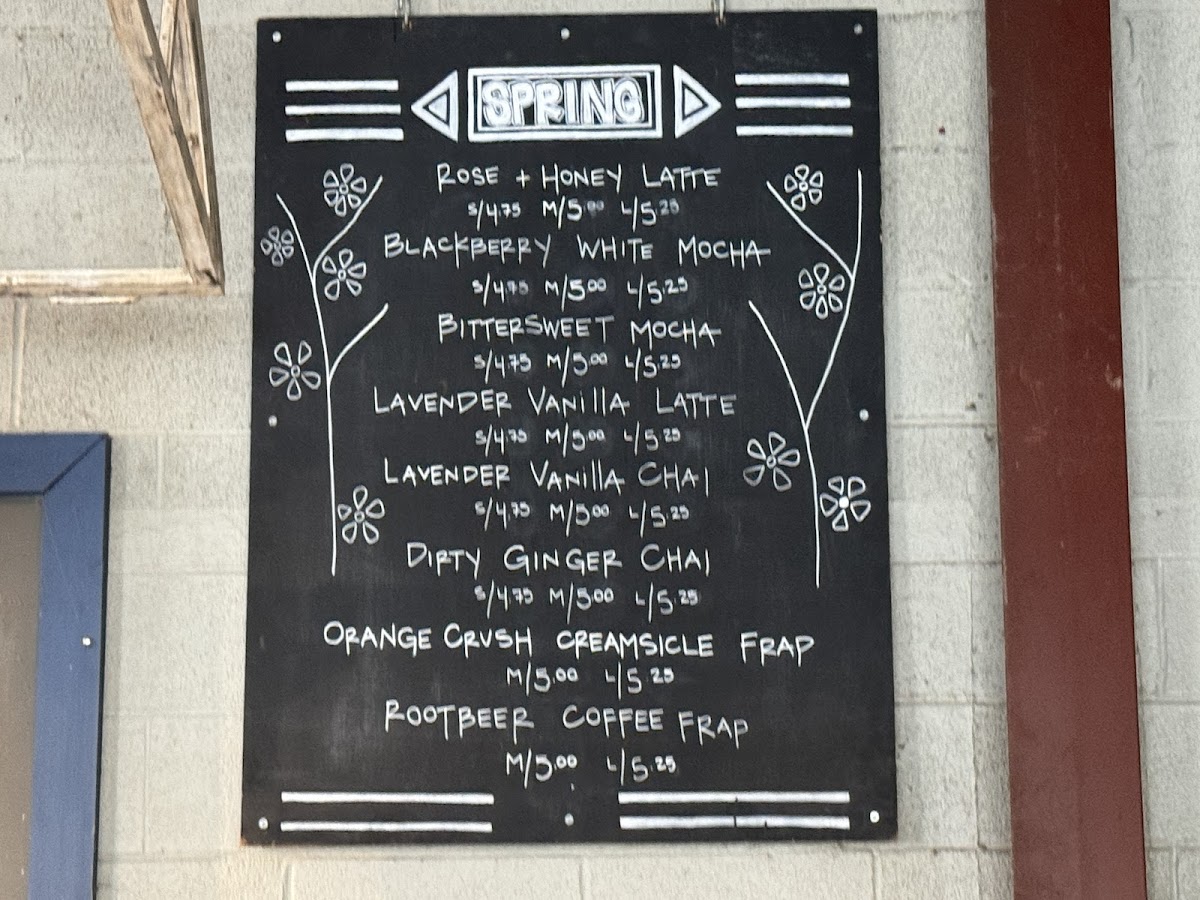 SPRING
ROSE + HONEY LATTE
S/4.75 M/5.00 L/5.25
BLACKBERRY WHITE MOCHA
S/4.75 M/5.00 L/5.25
BITTERSWEET MOCHA
S/4.75 M/5.00 L/5.25
LAVENDER VANIllA LATTE
S/4.75 M/5.00 L/5.25
LAVENDER VANIllA CHAI
S/4.75 M/5.00 L/5.25
DIRTY GINGER CHAI
S/4.75 M/5.00 L/5.25
ORANGE CRUSH CREAMSICLE FRAP
M/5.00 L/5.25
ROOTBEER COFFEE FRAP
M/5.00 L/5.25